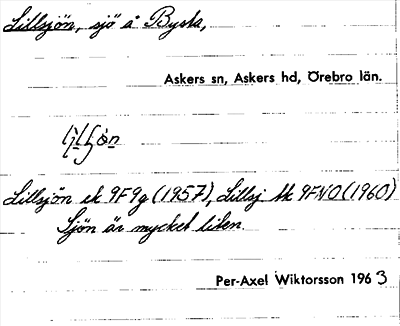 Lillsjön, sjö å Bysta,
Askers sn, Askers hd, Örebro län.
Lillsjön ek 9F9g (1957), Lillsj tk 9FNO (1960)
Sjön är mycket liten.
Per-Axel Wiktorsson 1963